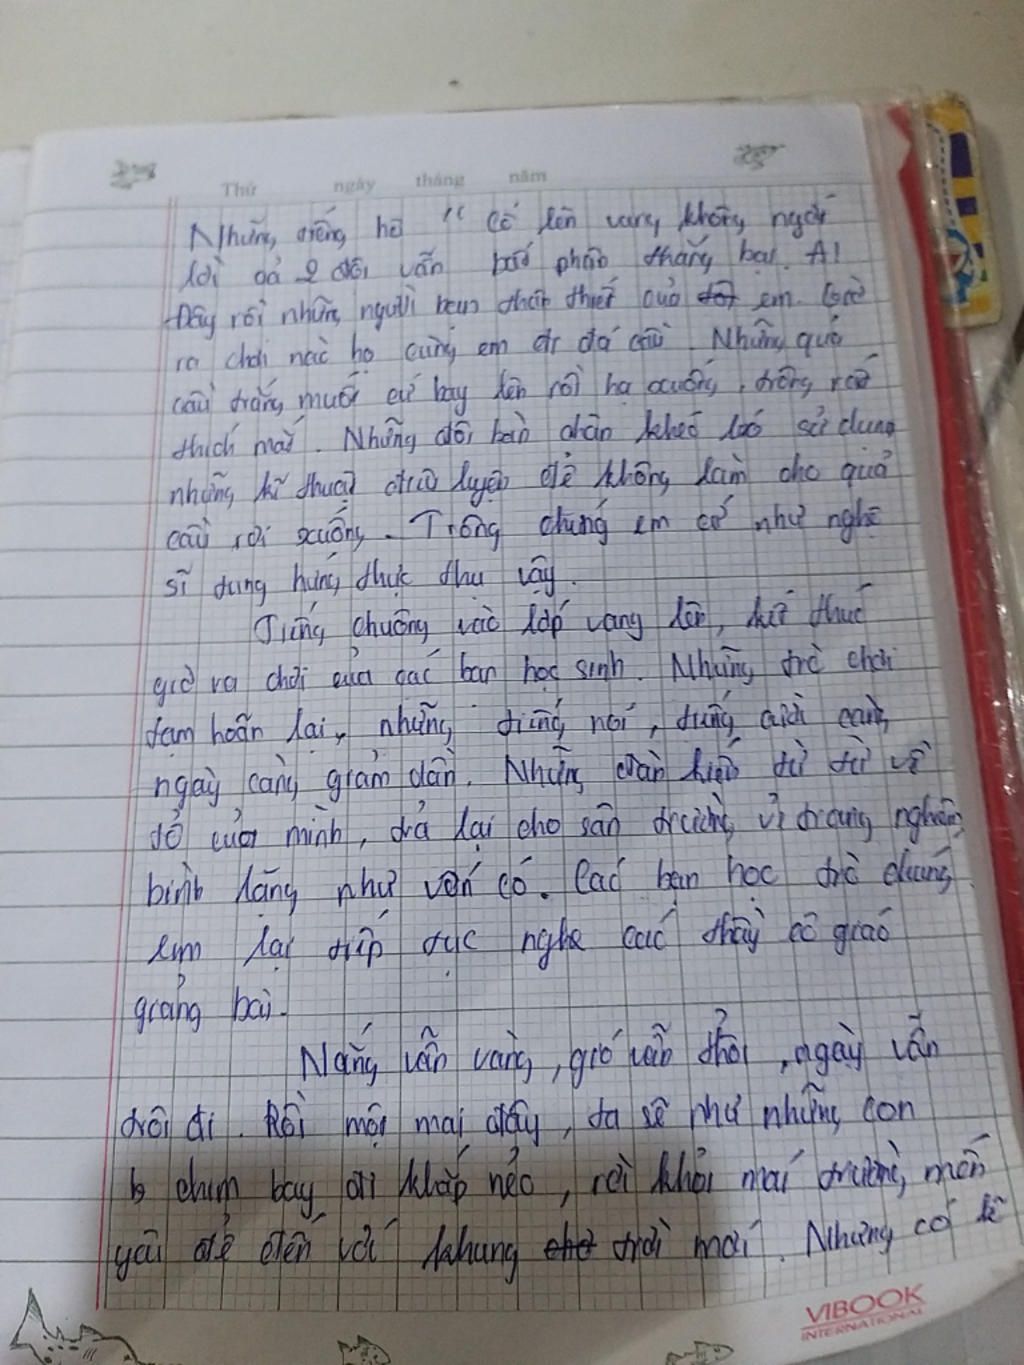 Thứ ngày tháng năm
Những tiếng hò " Cố lên vang không ngớt
lời cả 2 đội vẫn bất phân thắng bại. A!
Đây rồi những người bạn thân thiết của em. Giờ
ra chơi nào họ cùng em đi đá cầu. Những quả
cầu trắng muốt cứ bay lên rồi hạ xuống, trông rất
thích mắt. Những đôi bàn chân khéo léo sử dụng
những kĩ thuật điêu luyện để không làm cho quả
cầu rơi xuống. Trông chúng em cứ như nghệ
sĩ tung hứng thực thụ vậy.
Tiếng chuông vào lớp vang lên, kết thúc
giờ ra chơi của các bạn học sinh. Những trò chơi
tạm hoãn lại, những tiếng nói, tiếng cười càng
ngày càng giảm dần. Những đàn kiến từ từ về
tổ của mình, trả lại cho sân trường vẻ trang nghiêm
bình lặng như vốn có. Các bạn học trò chúng
em lại tiếp tục nghe các thầy cô giáo
giảng bài.
Nắng vẫn vàng, gió vẫn thổi, ngày vẫn
trôi đi. Rồi một mai đây, ta sẽ như những con
chim bay đi khắp nẻo, rời khỏi mái trường mến
yêu để đến với khung trời mới. Nhưng có lẽ
VIBOOK
INTERNATIONAL